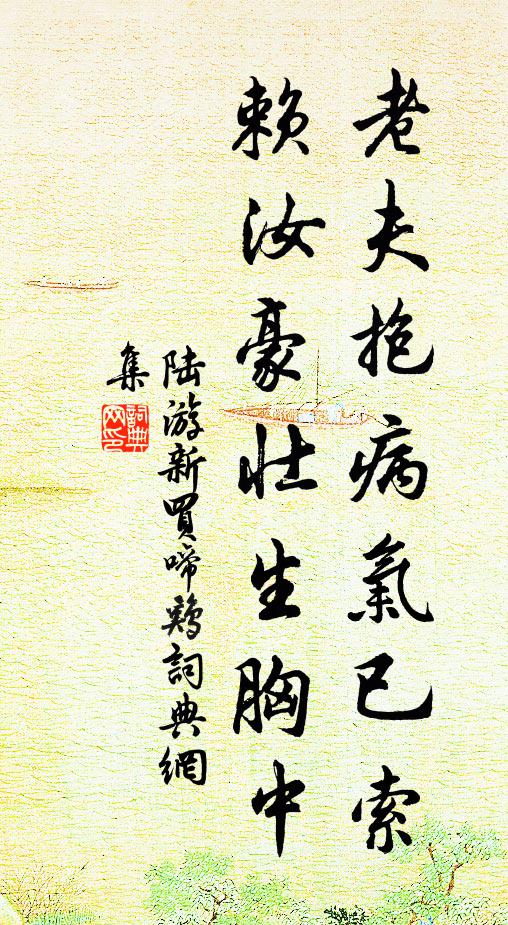 老夫抱病氣已索
賴汝豪壯生胸中
陆游新買啼鷄詞典網
集
詞典
网印